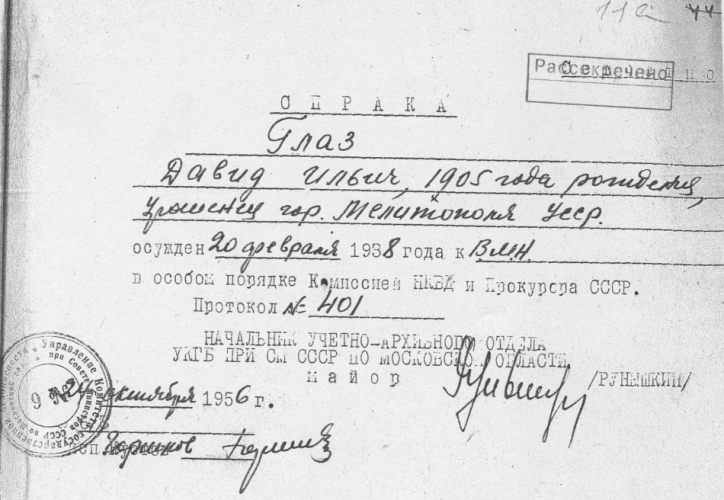 11а 44
Рассекречено
Секретно
СПРАВКА
Глаз
Давид Ильич, 1905 года рождения,
уроженец гор. Мелитополя УССР.
осужден 20 февраля 1938 года к ВМН
в особом порядке Комиссией НКВД и Прокурора СССР.
Протокол № 401
НАЧАЛЬНИК УЧЕТНО-АРХИВНОГО ОТДЕЛА
УКГБ ПРИ СМ СССР ПО МОСКОВСКОЙ ОБЛАСТИ
майор /РУНЫШКИН/
октября 1956 г.
Горшков
Управление Комитета государственной при Совете Министров СССР по Московской
9